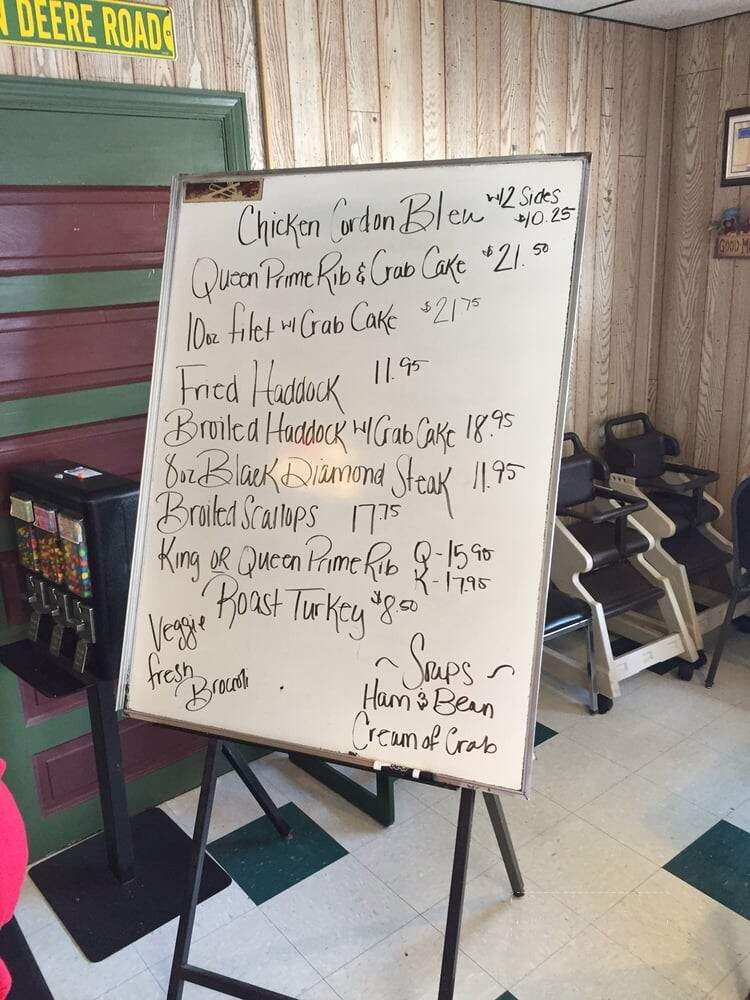 N DEERE ROAD
Chicken Cordon Bleu w/2 Sides $10.25
Queen Prime Rib & Crab Cake $21.50
10oz filet w/ Crab Cake $21.75
Fried Haddock 11.95
Broiled Haddock w/ Crab Cake 18.95
8oz Black Diamond Steak 11.95
Broiled Scallops 17.75
King OR Queen Prime Rib Q-15.95
K-17.95
Roast Turkey $8.50
Veggie
fresh
Brocoli
~ Soups ~
Ham & Bean
Cream of Crab
GOOD M